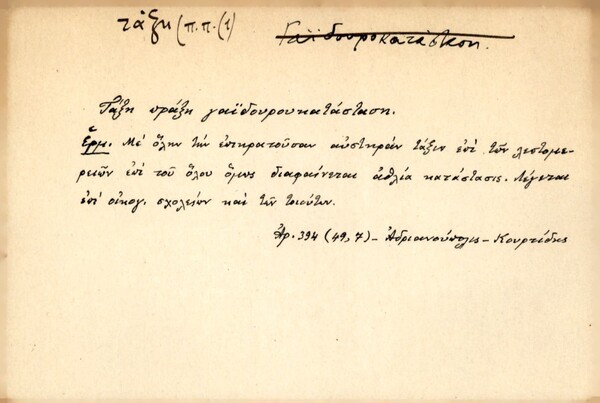 τάξη (π.π. (1) Γαϊδουροκατάσταση.
Τάξη πράξη γαϊδουρουκατάσταση.
Ἑρμ. Μέ ὅλην τήν ἐπικρατοῦσαν αὐστηράν τάξιν ἐπί τῶν λεπτομε-
ρειῶν ἐπί τοῦ ὅλου ὅμως διαφαίνεται ἀθλία κατάστασις. Λέγεται
ἐπί οἰκογ. σχολείων καί τῶν τοιούτων.
Ἀρ. 394 (49,7) - Ἀδριανούπολις - Κουρτίδης